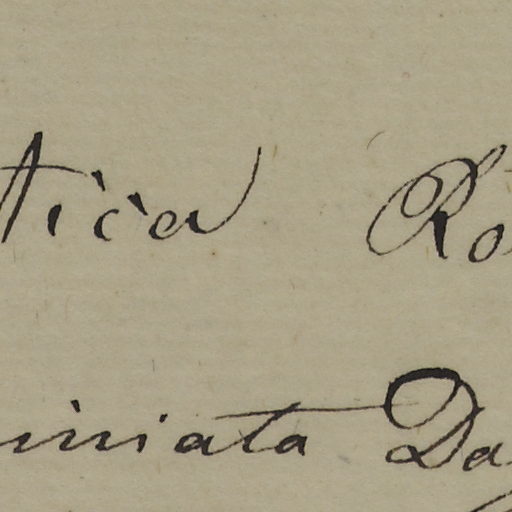 tica Ro
iniata Da